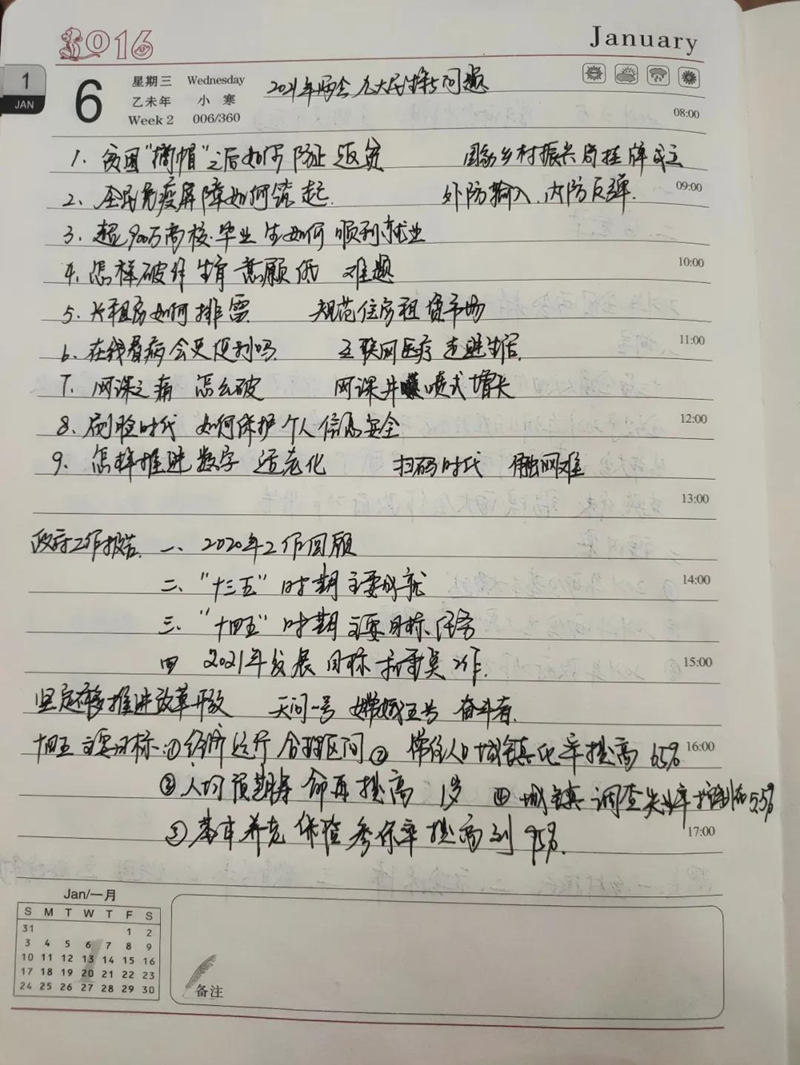 2016
January
1
JAN
6
星期三 Wednesday
乙未年 小寒
Week 2 006/360
2021年两会 九大民生问题
08:00
1. 贫困"摘帽"之后如何防止返贫 国家乡村振兴局挂牌成立
2. 全民免疫屏障如何筑起. 外防输入.内防反弹.
09:00
3. 超900万高校毕业生如何顺利就业
4. 怎样破解生育意愿低 难题
10:00
5. 长租房如何排雷 规范住房租赁市场
6. 在线看病会更便利吗 互联网医疗走进生活.
11:00
7. 网课之病 怎么破 网课井喷式增长
8. 刷脸时代 如何保护个人信息安全
12:00
9. 怎样推进数字适老化 扫码时代 触网难
13:00
政府工作报告. 一、2020年工作回顾
二、"十三五"时期主要成就
14:00
三、"十四五"时期主要目标任务
四 2021年发展目标 工作.
15:00
推进改革开放 天问一号 嫦娥五号 奋斗者.
十四五主要目标:①经济运行合理区间② 人口城镇化率提高65%
16:00
③人均预期寿命再提高 1岁 ④城镇调查失业率 5.5%
⑤基本养老保险参保率提高到95%.
17:00
Jan/一月
S M T W T F S
31 1 2
3 4 5 6 7 8 9
10 11 12 13 14 15 16
17 18 19 20 21 22 23
24 25 26 27 28 29 30
备注